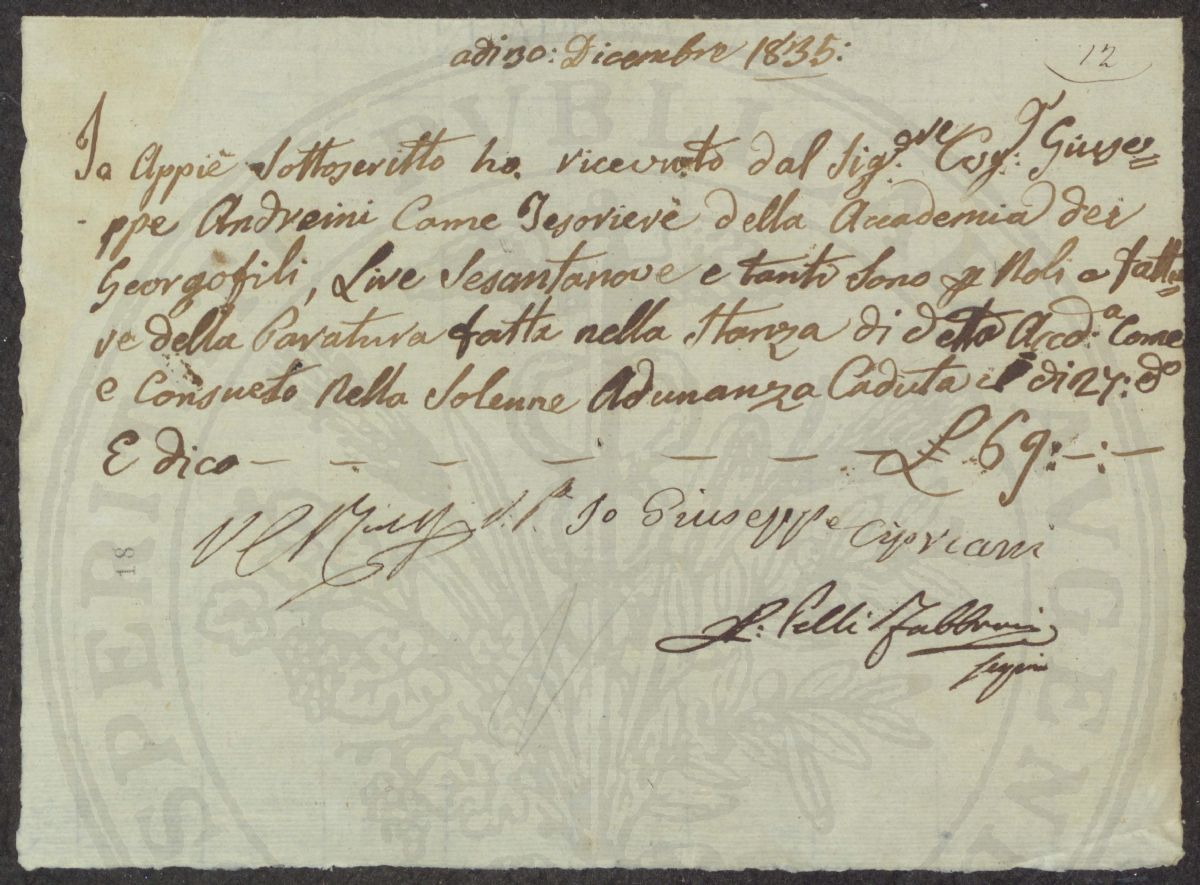 adi 30: Dicembre 1835:
12
Io Appiè Sottoscritto ho ricevuto dal Sig.re Cav.r Giuse=
ppe Andreini Come Tesoriere della Accademia dei
Georgofili, Lire Sesantanove e tanti Sono p Noli e fattu=
re della Paratura fatta nella Stanza di detta Accd.a Come
e Consueto Nella Solenne Adunanza Caduta il di 27: d.o
E dico — — — — — — — £ 69:—:—
Io Giuseppe Cipriani
L: Pelli Fabbroni
PVBLICAE
PROSPERITATI AVGENDAE
18